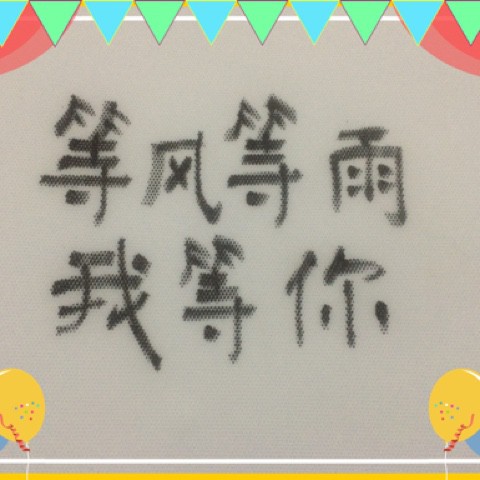 等风等雨
我等你